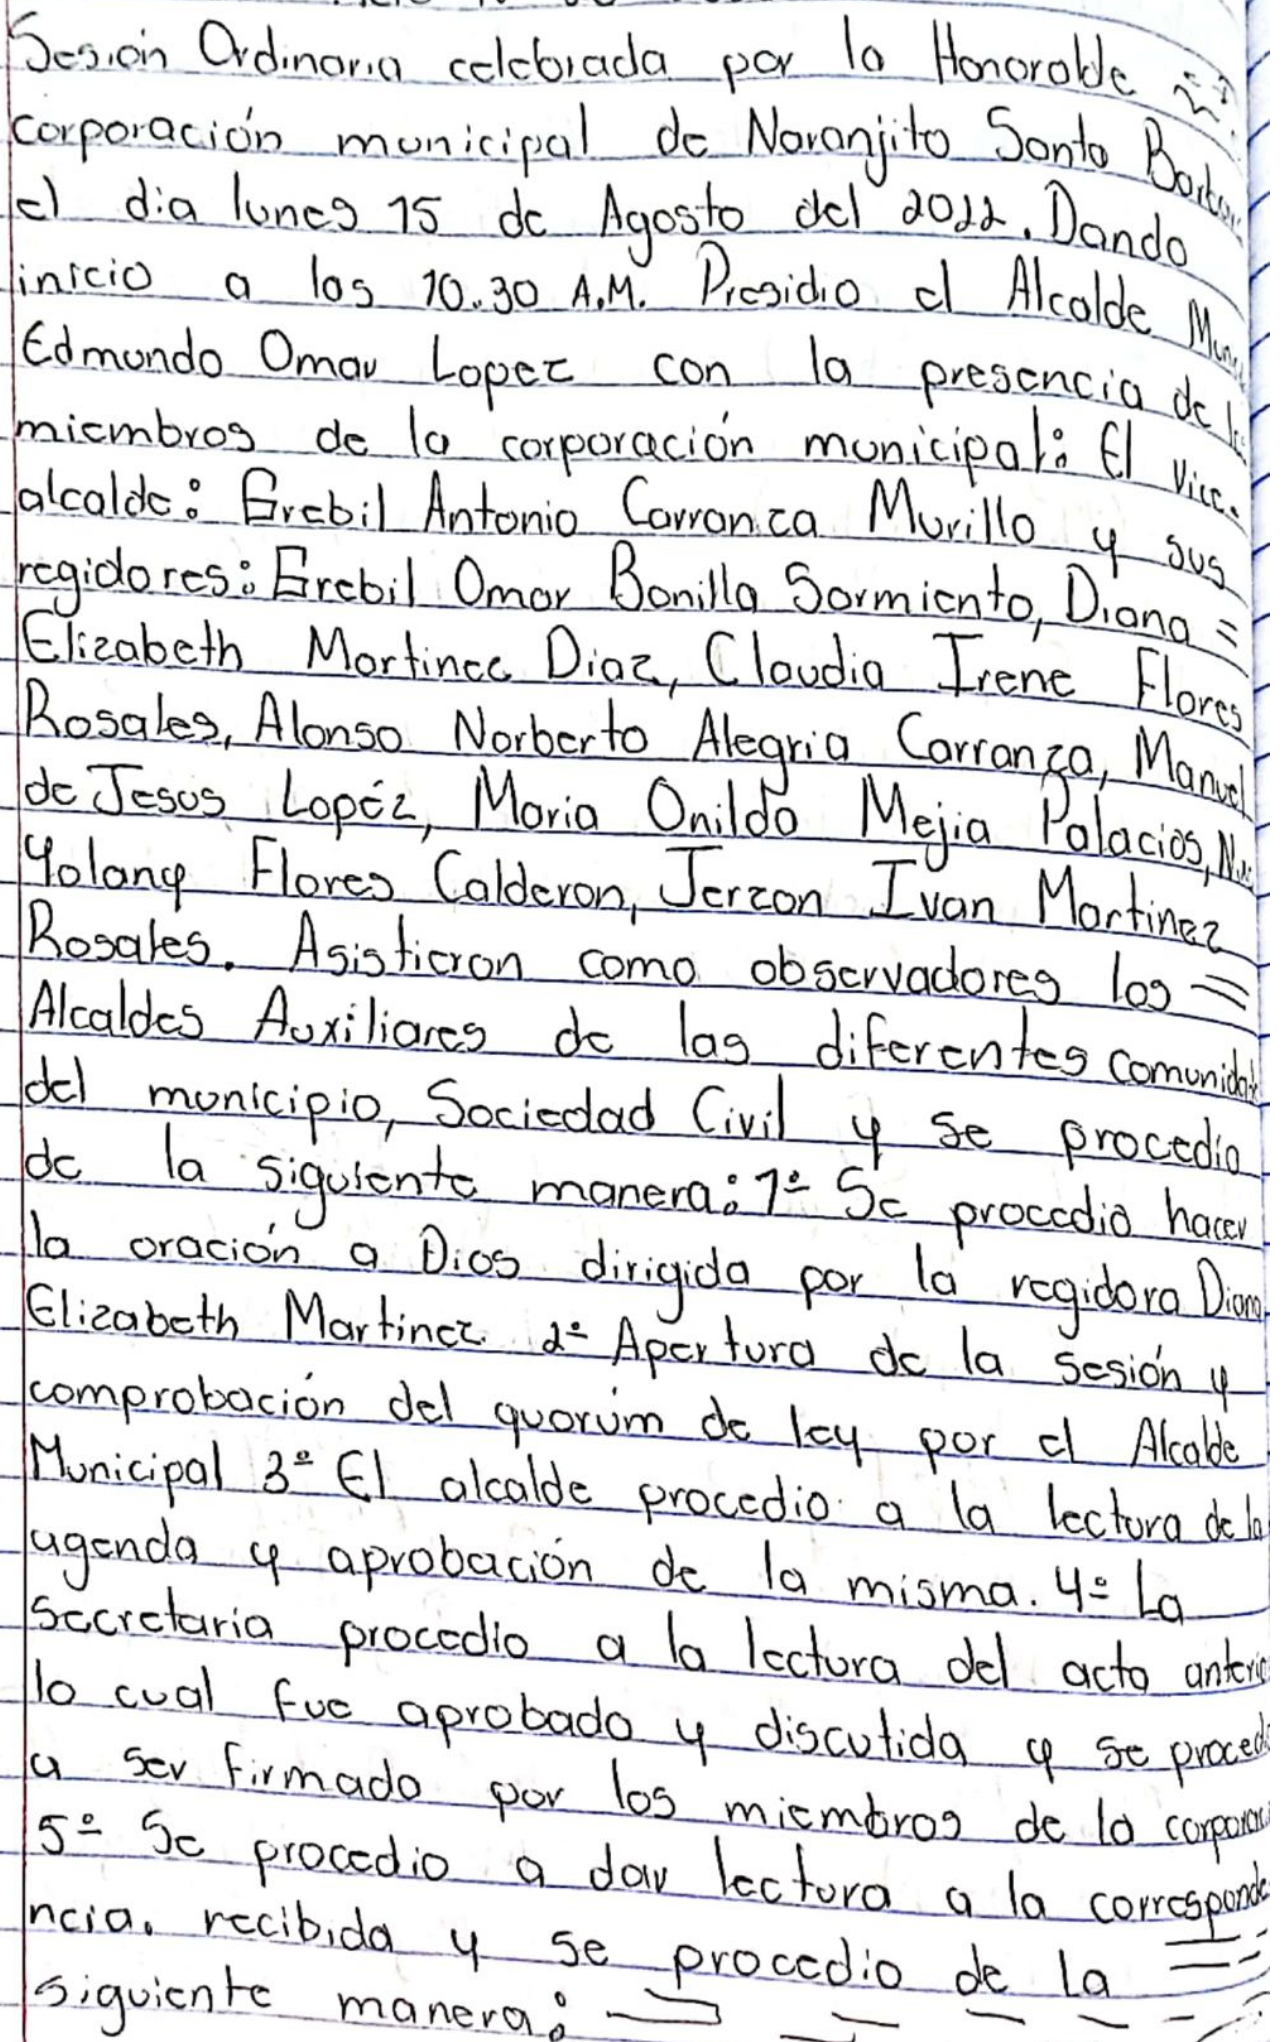 Sesión Ordinaria celebrada por la Honorable
corporación municipal de Naranjito Santa Barbara
el dia lunes 15 de Agosto del 2022. Dando
inicio a las 10.30 A.M. Presidio el Alcalde
Edmundo Omar Lopez con la presencia de
miembros de la corporación municipal: El Vice.
alcalde: Grebil Antonio Carranza Murillo y sus
regidores: Grebil Omar Bonilla Sarmiento, Diana =
Elizabeth Martinez Diaz, Claudia Irene Flores
Rosales, Alonso Norberto Alegria Carranza, Manuel
de Jesus Lopéz, Maria Onilda Mejia Palacios,
Yolany Flores Calderon, Jerzon Ivan Martinez
Rosales. Asistieron como observadores los =
Alcaldes Auxiliares de las diferentes comunidad
del municipio, Sociedad Civil y se procedio
de la siguiente manera: 1º Se procedio hacer
la oración a Dios dirigida por la regidora Diana
Elizabeth Martinez. 2º Apertura de la sesión y
comprobación del quorúm de ley por el Alcalde
Municipal 3º El alcalde procedio a la lectura de la
agenda y aprobación de la misma. 4º La
secretaria procedio a la lectura del acta anterio
la cual fue aprobada y discutida y se procedi
a ser firmado por los miembros de la corporac
5º Se procedio a dar lectura a la corresponde
ncia. recibida y se procedio de la
siguiente manera: